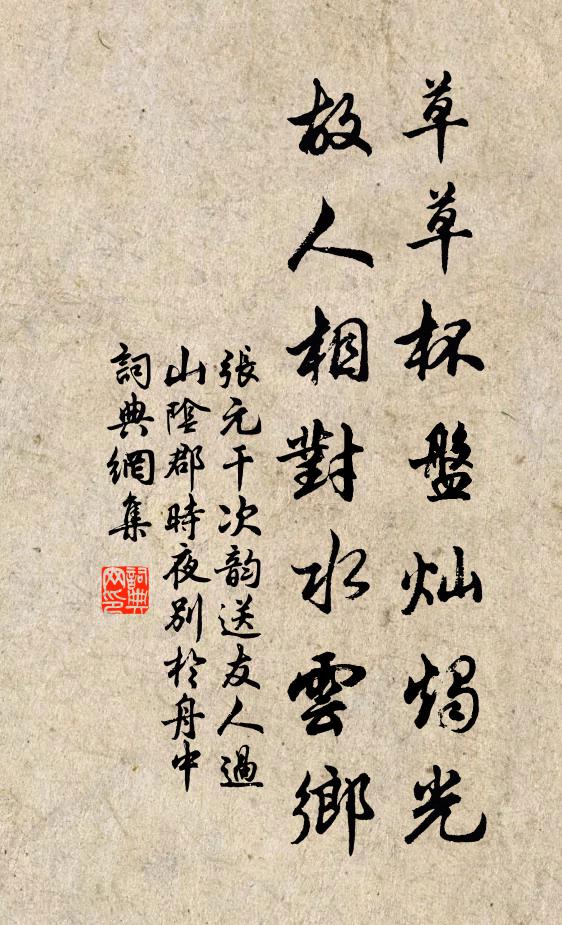 草草杯盤灿燭光
故人相對水雲鄉
張元干次韵送友人過
山陰郡時夜別於舟中
詞典網集
詞典
网印